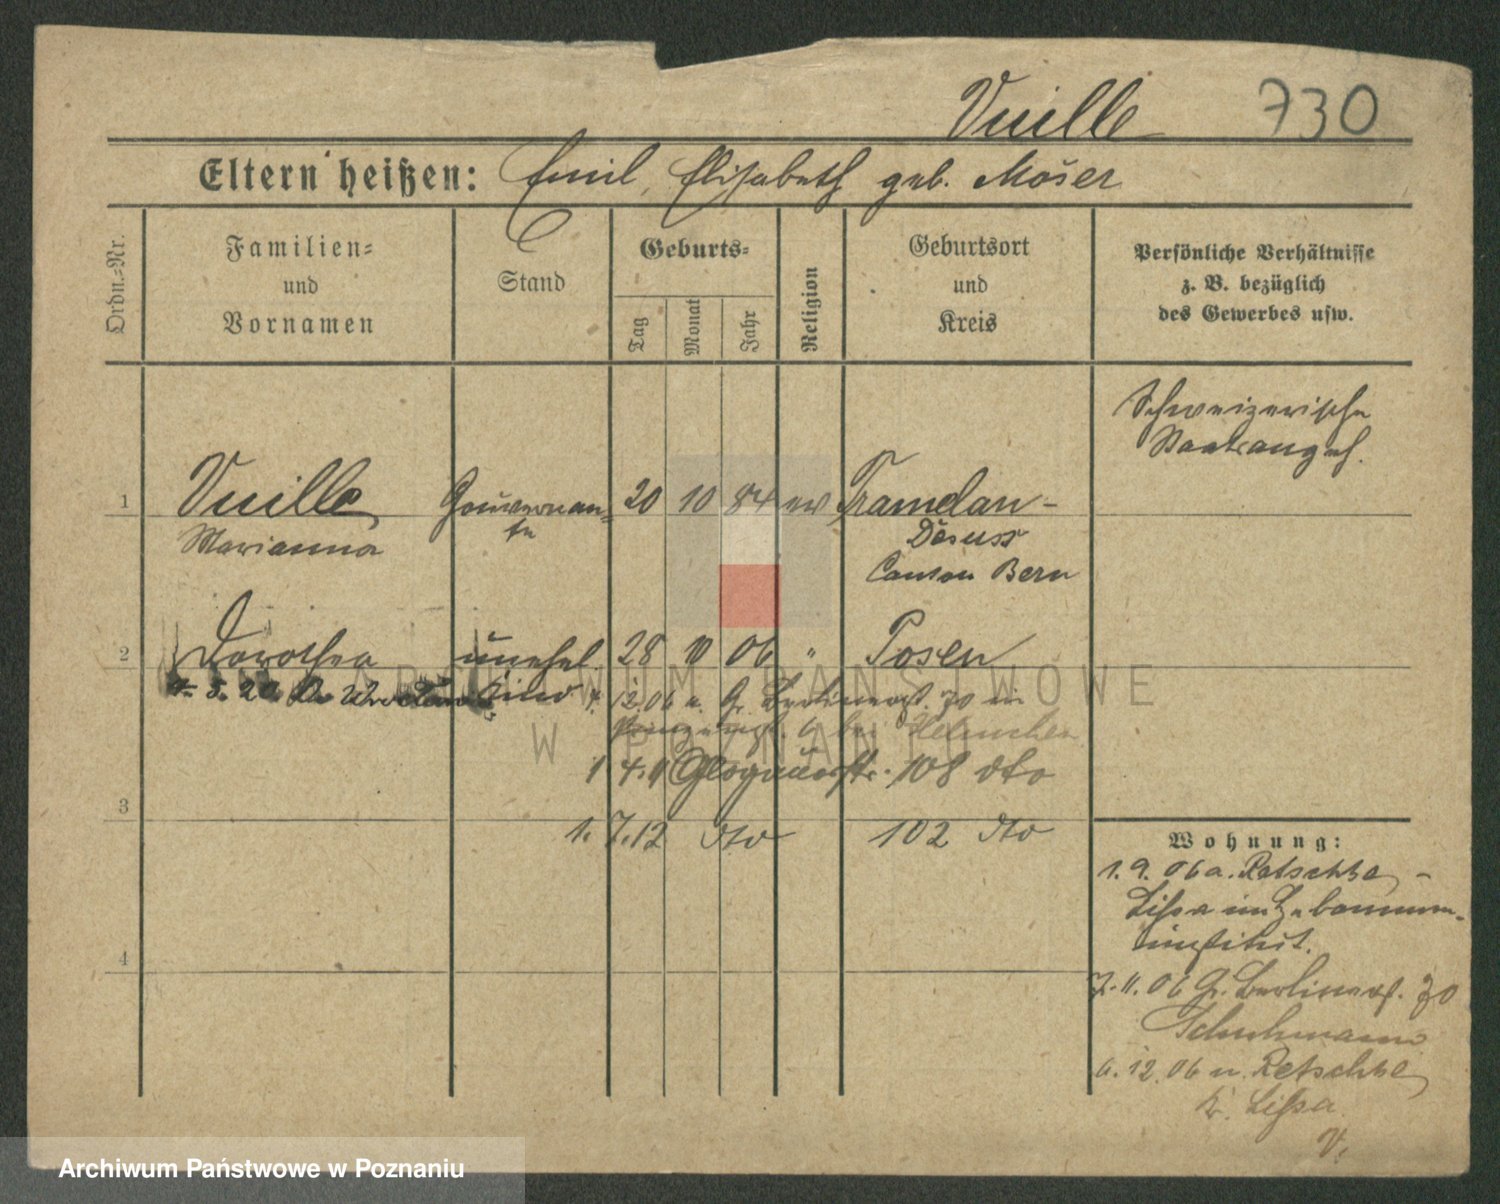 Vuille 730
Eltern heißen: Emil, Elisabeth geb. Moser
Ordn.=Nr.
Familien=
und
Vornamen
Stand
Geburts=
Tag
Monat
Jahr
Religion
Geburtsort
und
Kreis
Persönliche Verhältnisse
z. B. bezüglich
des Gewerbes usw.
Schweizerische
Staatsangeh.
1 Vuille Gouvernan= 20 10 84 ev Tramelan-
Marianna te Dessuss
Canton Bern
2 Dorothea unehel. 28 10 06 " Posen
Kind 4. 12.06 a. Gr. Berlinerst. 70 in
6 bei Helmchen
1 4. Glogauerstr. 108 dto
3
1. 7.12 dto 102 dto
Wohnung:
1. 9. 06 a. Ratschke -
Lissa in Hebammen-
institut.
7. 11. 06 Gr. Berlinerst. 70
Schuhmann
6. 12. 06 n. Retschke
K. Lissa
V.
4
ARCHIWUM PAŃSTWOWE
W POZNANIU
Archiwum Państwowe w Poznaniu